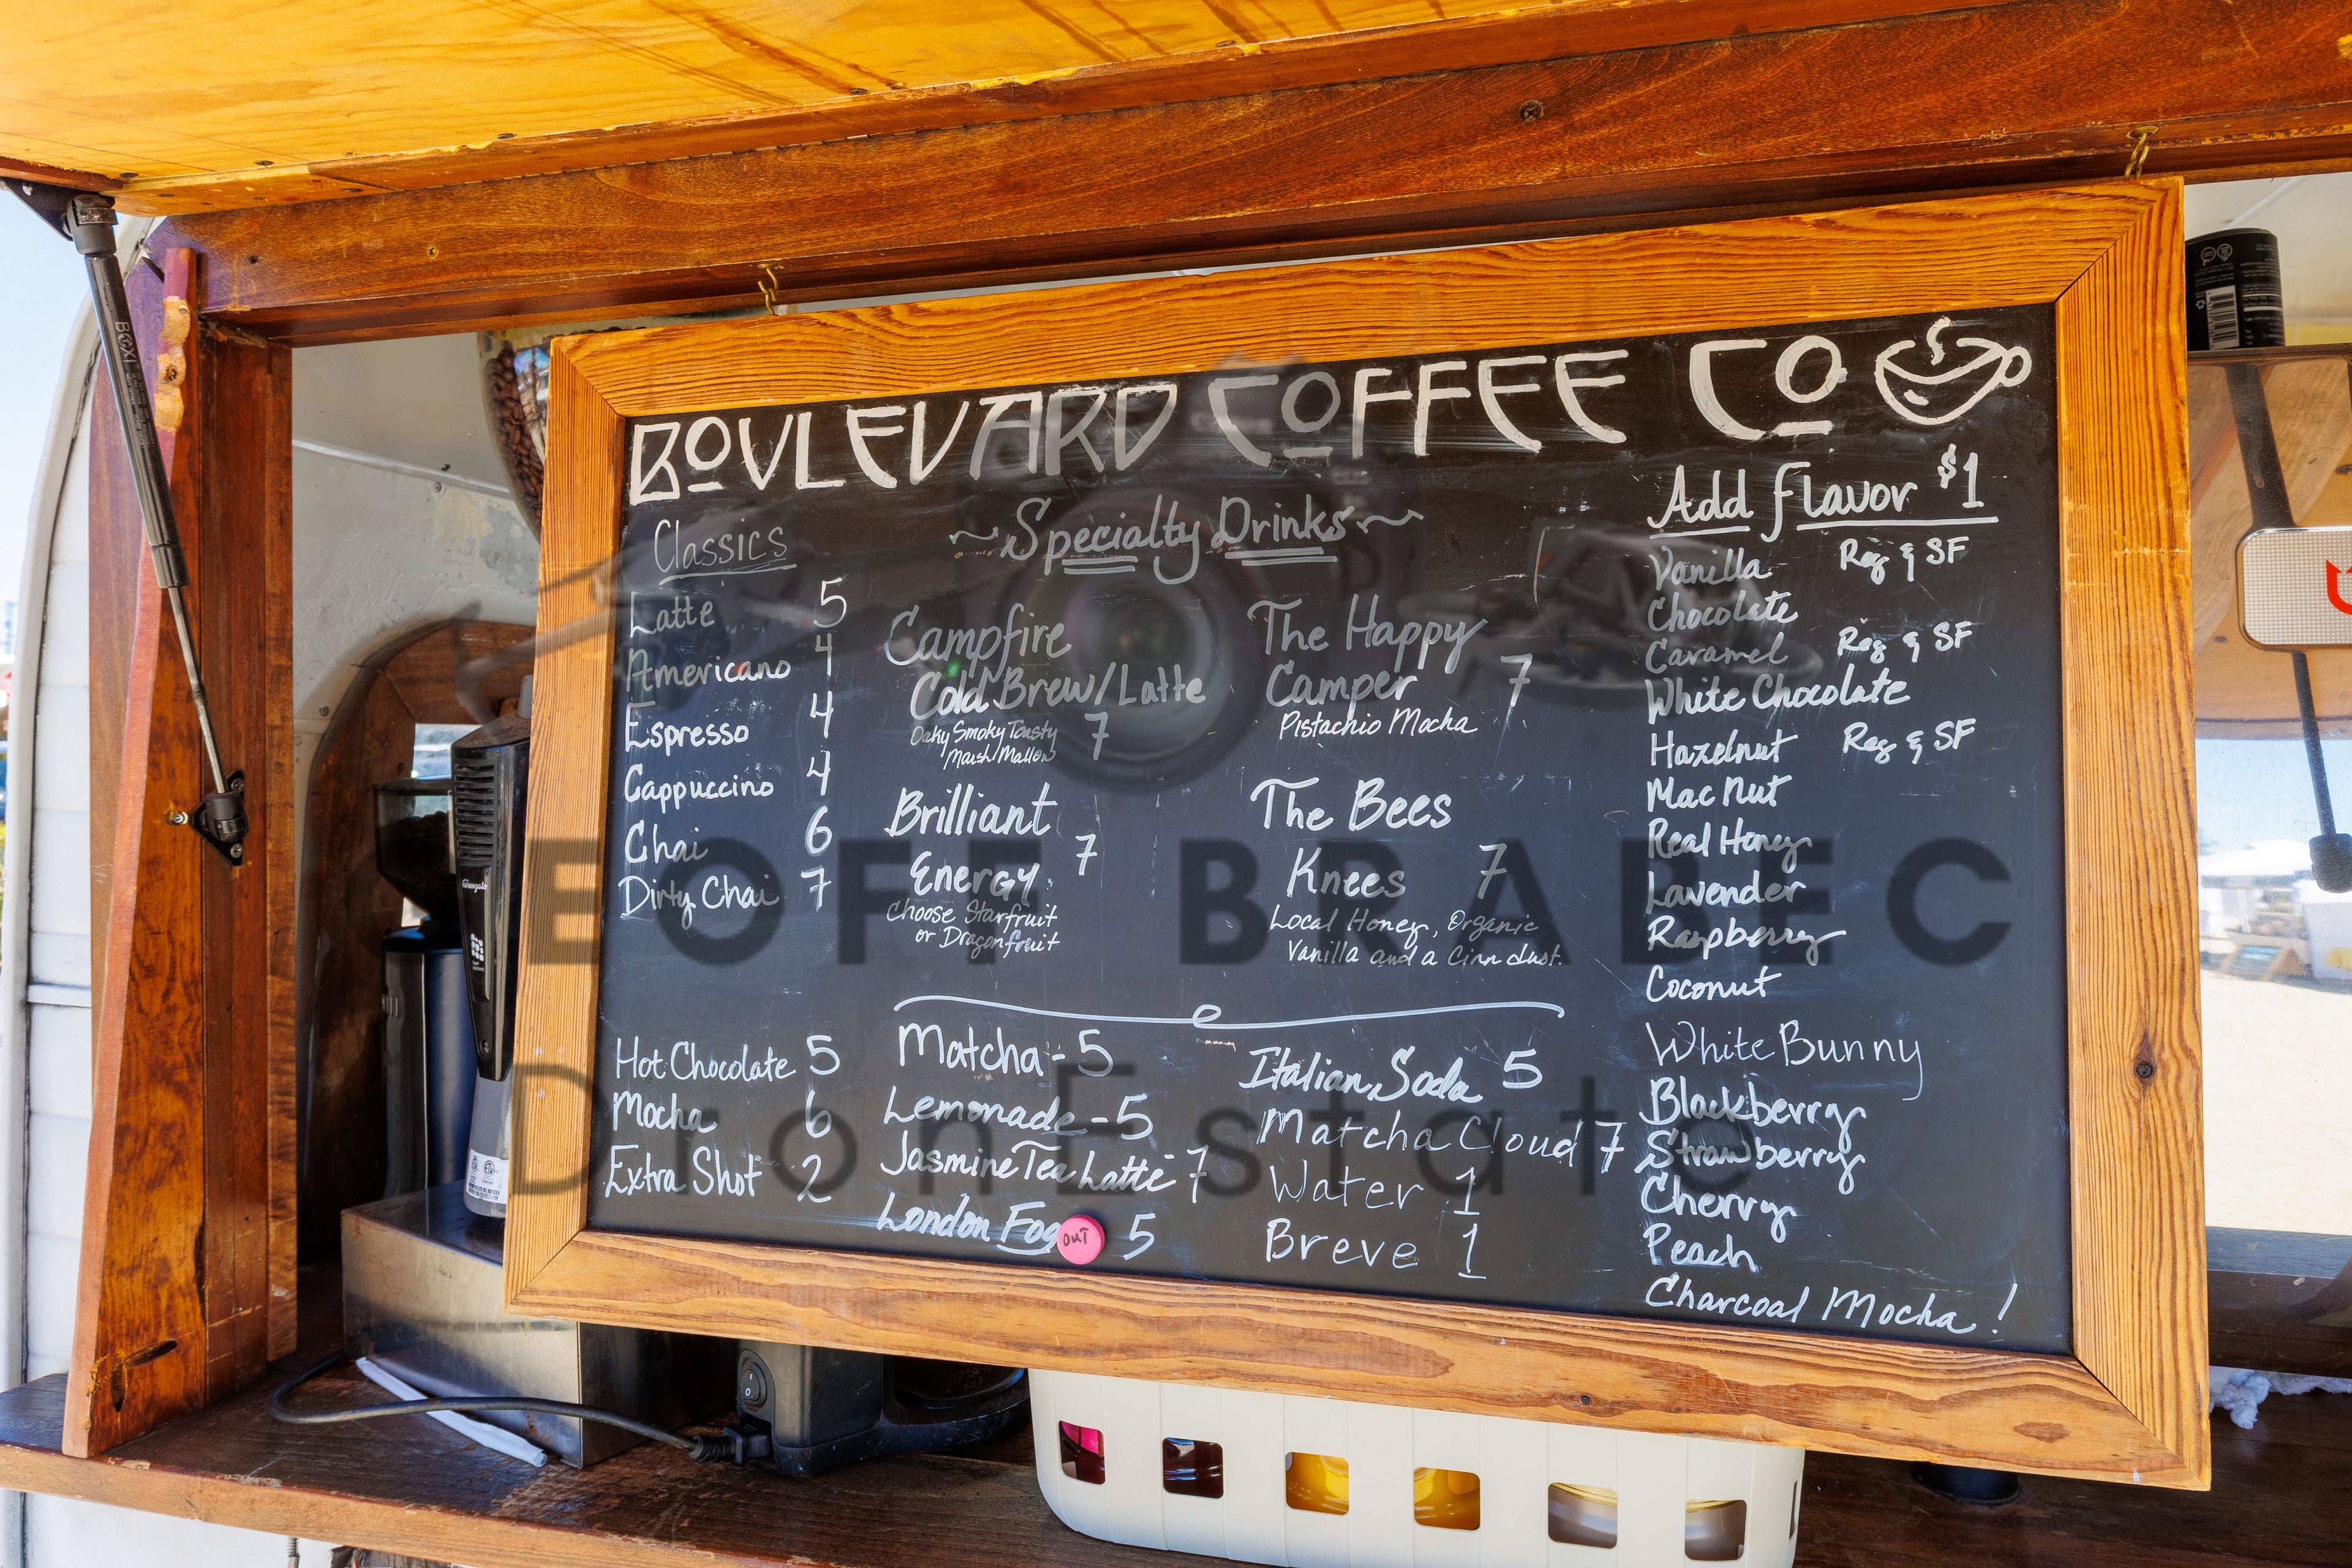 BOULEVARD COFFEE CO
Classics
Latte 5
Americano 4
Espresso 4
Cappuccino 4
Chai 6
Dirty Chai 7
Hot Chocolate 5
Mocha 6
Extra Shot 2
~Specialty Drinks~
Campfire
Cold Brew/Latte
Oaky Smoky Toasty 7
Marsh Mallow
Brilliant
Energy 7
Choose Starfruit
or Dragonfruit
The Happy
Camper 7
Pistachio Mocha
The Bees
Knees 7
Local Honey, Organic
Vanilla and a Cinn dust.
Matcha - 5
Lemonade - 5
Jasmine Tea Latte - 7
London Fog OUT 5
Italian Soda 5
Matcha Cloud 7
Water 1
Breve 1
Add flavor $1
Vanilla Reg & SF
Chocolate
Caramel Reg & SF
White Chocolate
Hazelnut Reg & SF
Mac Nut
Real Honey
Lavender
Raspberry
Coconut
White Bunny
Blackberry
Strawberry
Cherry
Peach
Charcoal Mocha !
EOFF BRABEC
DronEstate